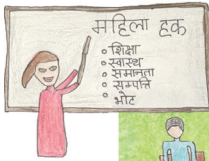 महिला हक
शिक्षा
स्वास्थ
समानता
सम्पत्ति
भोट